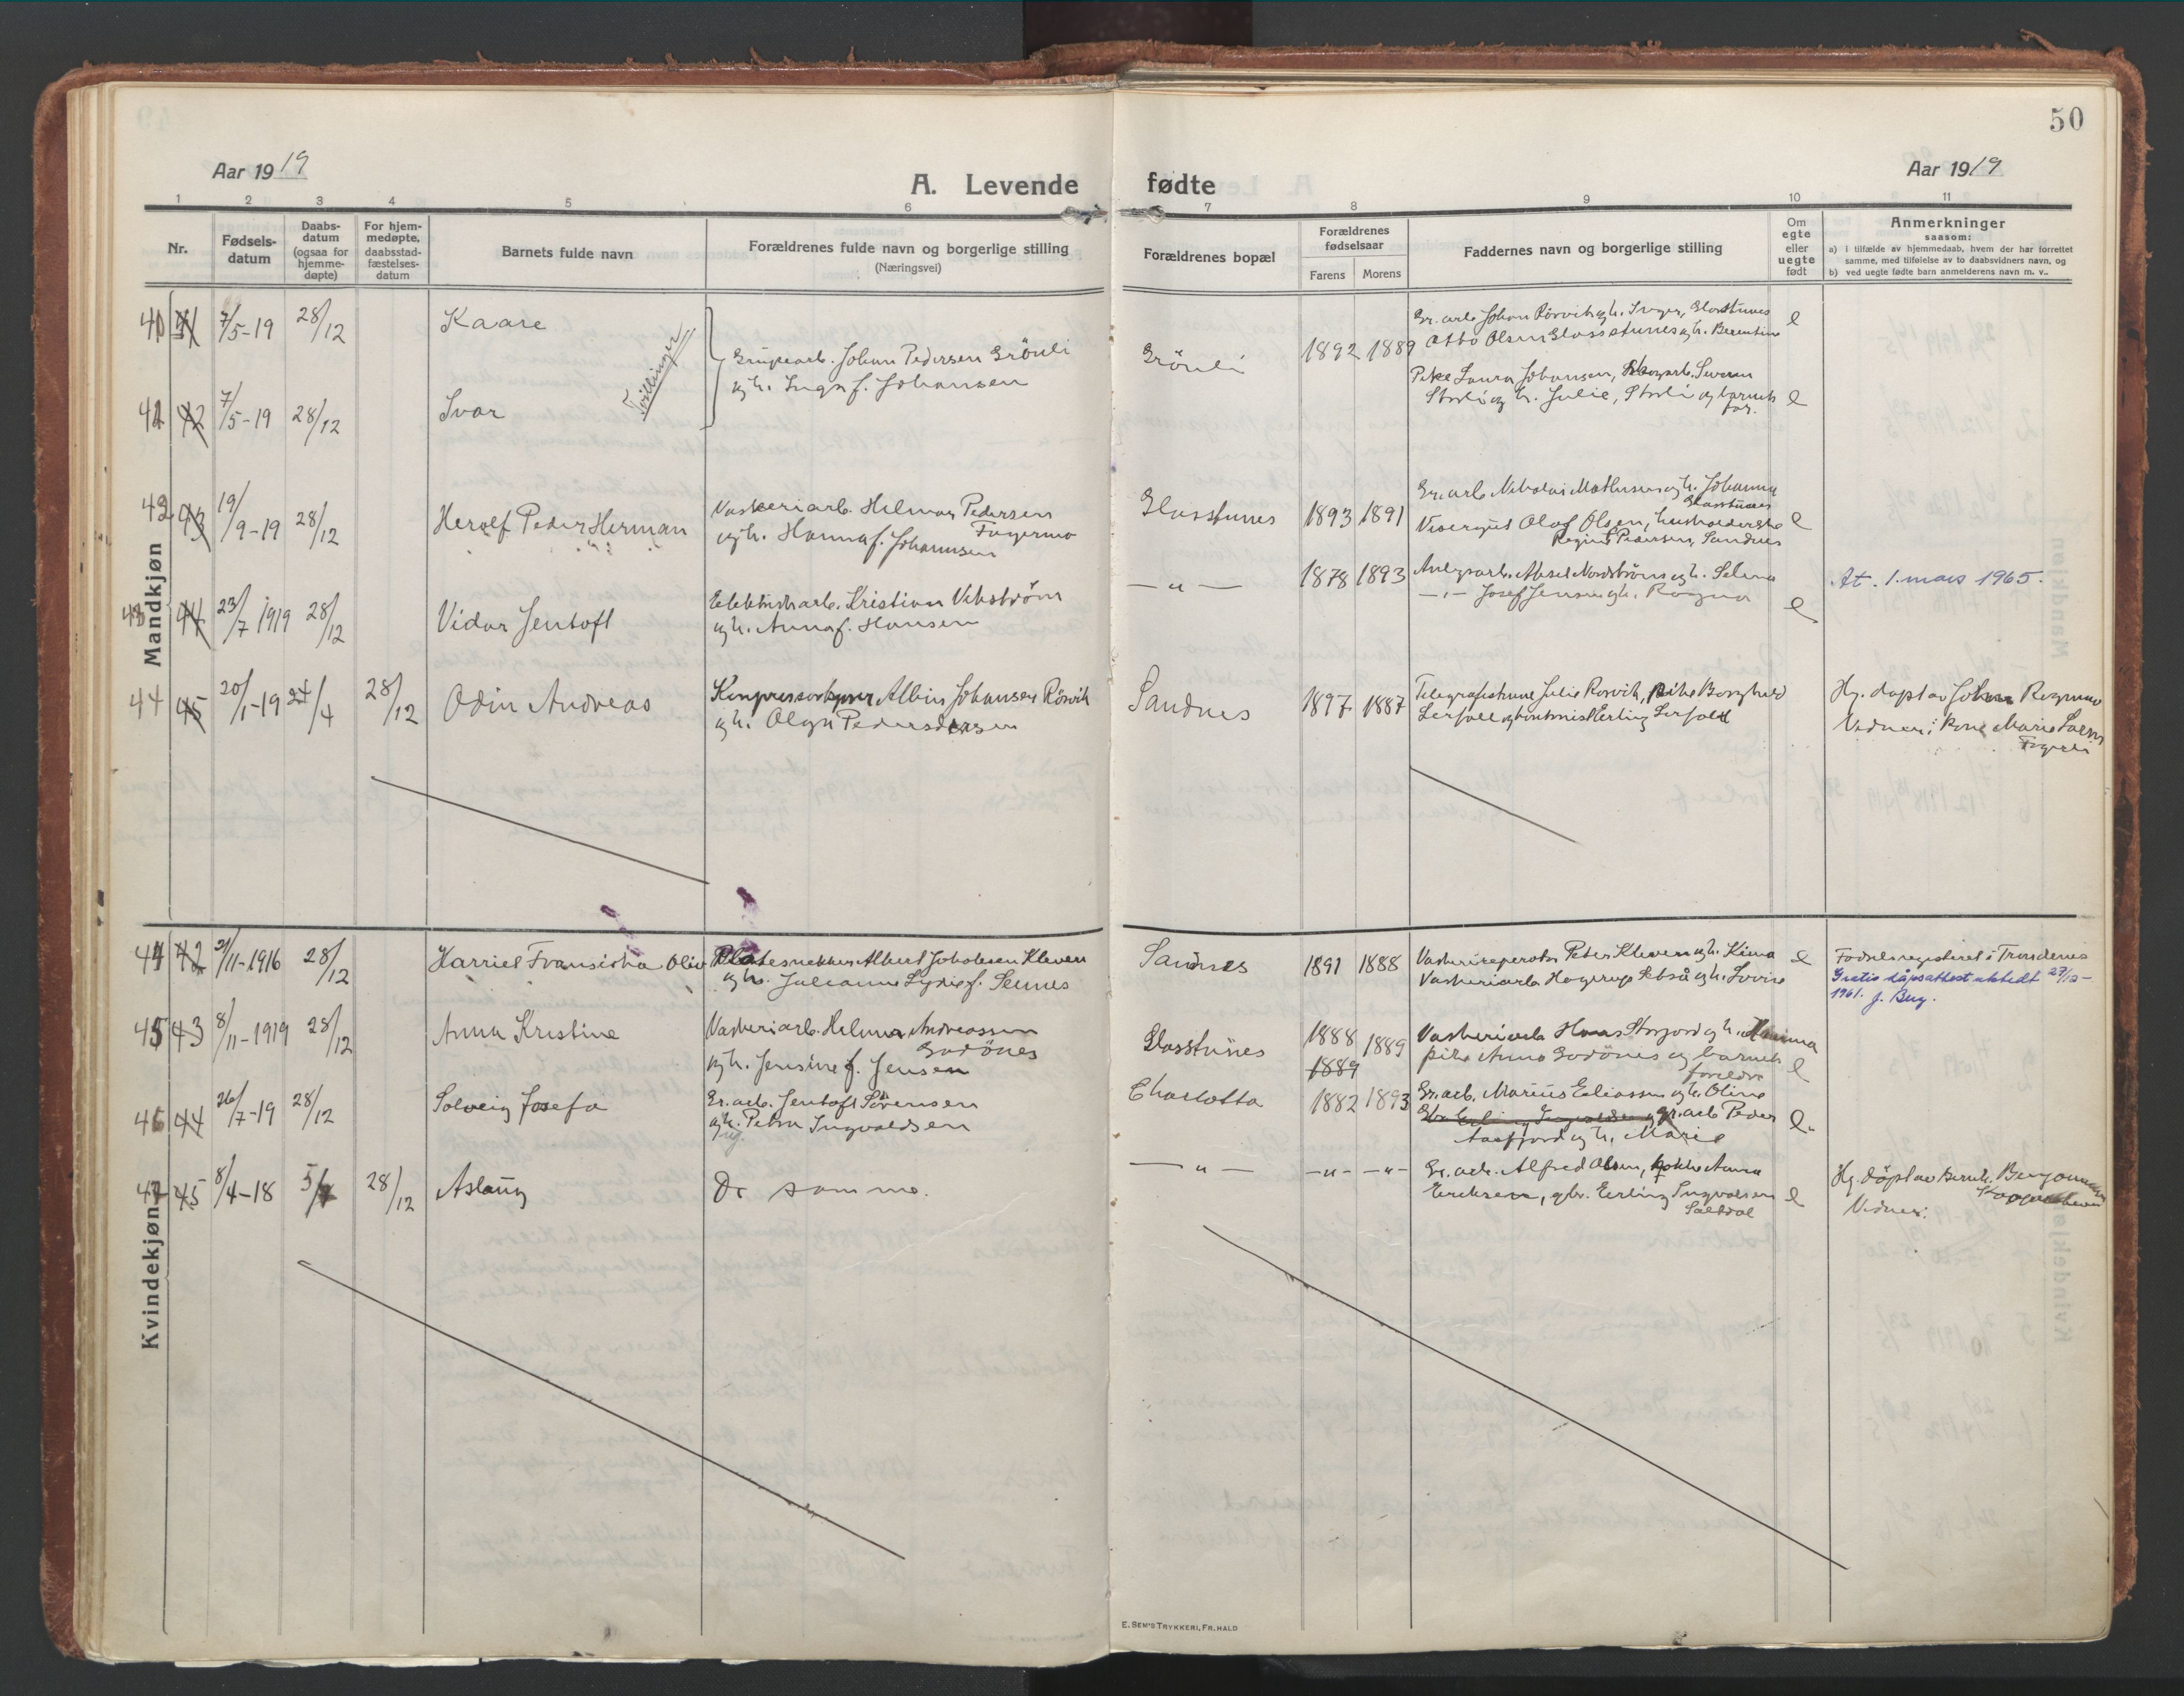 50
Aar 1919
A. Levende fødte
Aar 1919
1 2 3 4 5 6 7 8 9 10 11
Nr.
Fødsels-
datum
Daabs-
datum
(ogsaa for
hjemme-
døpte)
For hjem-
medøpte,
daabsstad-
fæstelses-
datum
Barnets fulde navn
Forældrenes fulde navn og borgerlige stilling
(Næringsvei)
Forældrenes bopæl
Forældrenes
fødselsaar
Farens Morens
Faddernes navn og borgerlige stilling
Om
egte
eller
uegte
født
Anmerkninger
saasom:
a) i tilfælde av hjemmedaab, hvem der har forrettet
samme, med tilføielse av to daabsvidners navn, og
b) ved uegte fødte barn anmelderens navn m. v..
Mandkjøn
40 41 7/5-19 28/12 Kaare
Tvillinger
Grubearb. Johan Pedersen Grönli
og h. Inga f. Johansen
Grönli
1892 1889
Gr. arb. Johan Rörvik og h. Inger, Glasstunes
Otto Olsen Glasstunes og h. Berentine
e
41 42 7/5-19 28/12 Ivar
Pike Laura Johansen, Skogarb. Severin
Storli og h. Julie, Storli og barnets
far.
e
42 43 19/9-19 28/12 Herolf Peder Herman
Vaskeriarb. Hilmar Pedersen
Fagermo
og h. Hanna f. Johannsen
Glasstunes
1893 1891
Gr. arb. Nikolai Mathisen og h. Johanna
Glasstunes
Visergut Olaf Olsen, husholderske
Regine Pedersen, Sandnes
e
43 44 23/7 1919 28/12 Vidar Jentoft
Elektriskarb. Kristian Vikström
og h. Anna f. Hansen
— " —
1878 1893
Anlegsarb. Aksel Nordström og h. Selma
— " — Josef Jensen og h. Ragna
e
At. 1. mars 1965.
44 45 20/1-19 24/4 28/12 Odin Andreas
Kompressorkjører Albin Johansen Rörvik
og h. Olga Pedersdersen
Sandnes
1897 1887
Telegrafistinne Julie Rorvik, Pike Borghild
Lerfall og kontorist Erling Lerfald
Hj. døpt av Johan Rognmo
Vidner: Kone Marie Larsen
Fagerli
Kvindekjøn
44 42 21/11-1916 28/12 Harriet Fransiska Oliv
Platesnekker Albert Jakobsen Kleven
og h. Julianne Lydie f. Seines
Sandnes
1891 1888
Vaskerireperatør Peter Kleven og h. Kima
Vaskeriarb. Hagerup Setså og h. Lovise
e
Fødselsregistrert i Trondenes
Gratis dåpsattest utstedt 27/12-
1961. J. Berg.
45 43 8/11-1919 28/12 Anna Kristine
Vaskeriarb. Hilmar Andreassen
Godönes
og h. Jensine f. Jensen
Glasstunes
1888 1889
1889
Vaskeriarb. Hans Storjord og h. Hanna
pike Anna Godönes og barnets
foreldre
e
46 44 26/7-19 28/12 Solveig Josefa
Gr. arb. Jentoft Sörensen
og h. Petra Ingvaldsen
Charlotta
1882 1893
Gr. arb. Marius Eliassen og h. Oline
Gbr. Erling Ingvaldsen og gr. arb. Peder
Aasfjord og h. Marie
e
47 45 8/4-18 5/7 28/12 Aslaug
De samme.
— " — — " — — " —
Gr. arb. Alfred Olsen, kokke Anna
Eriksen, gbr. Erling Ingvalsen
Saltdal
e
Hj. döpt av Bernh. Benjaminsen
Vidner:
E. SEM'S TRYKKERI, FR.HALD